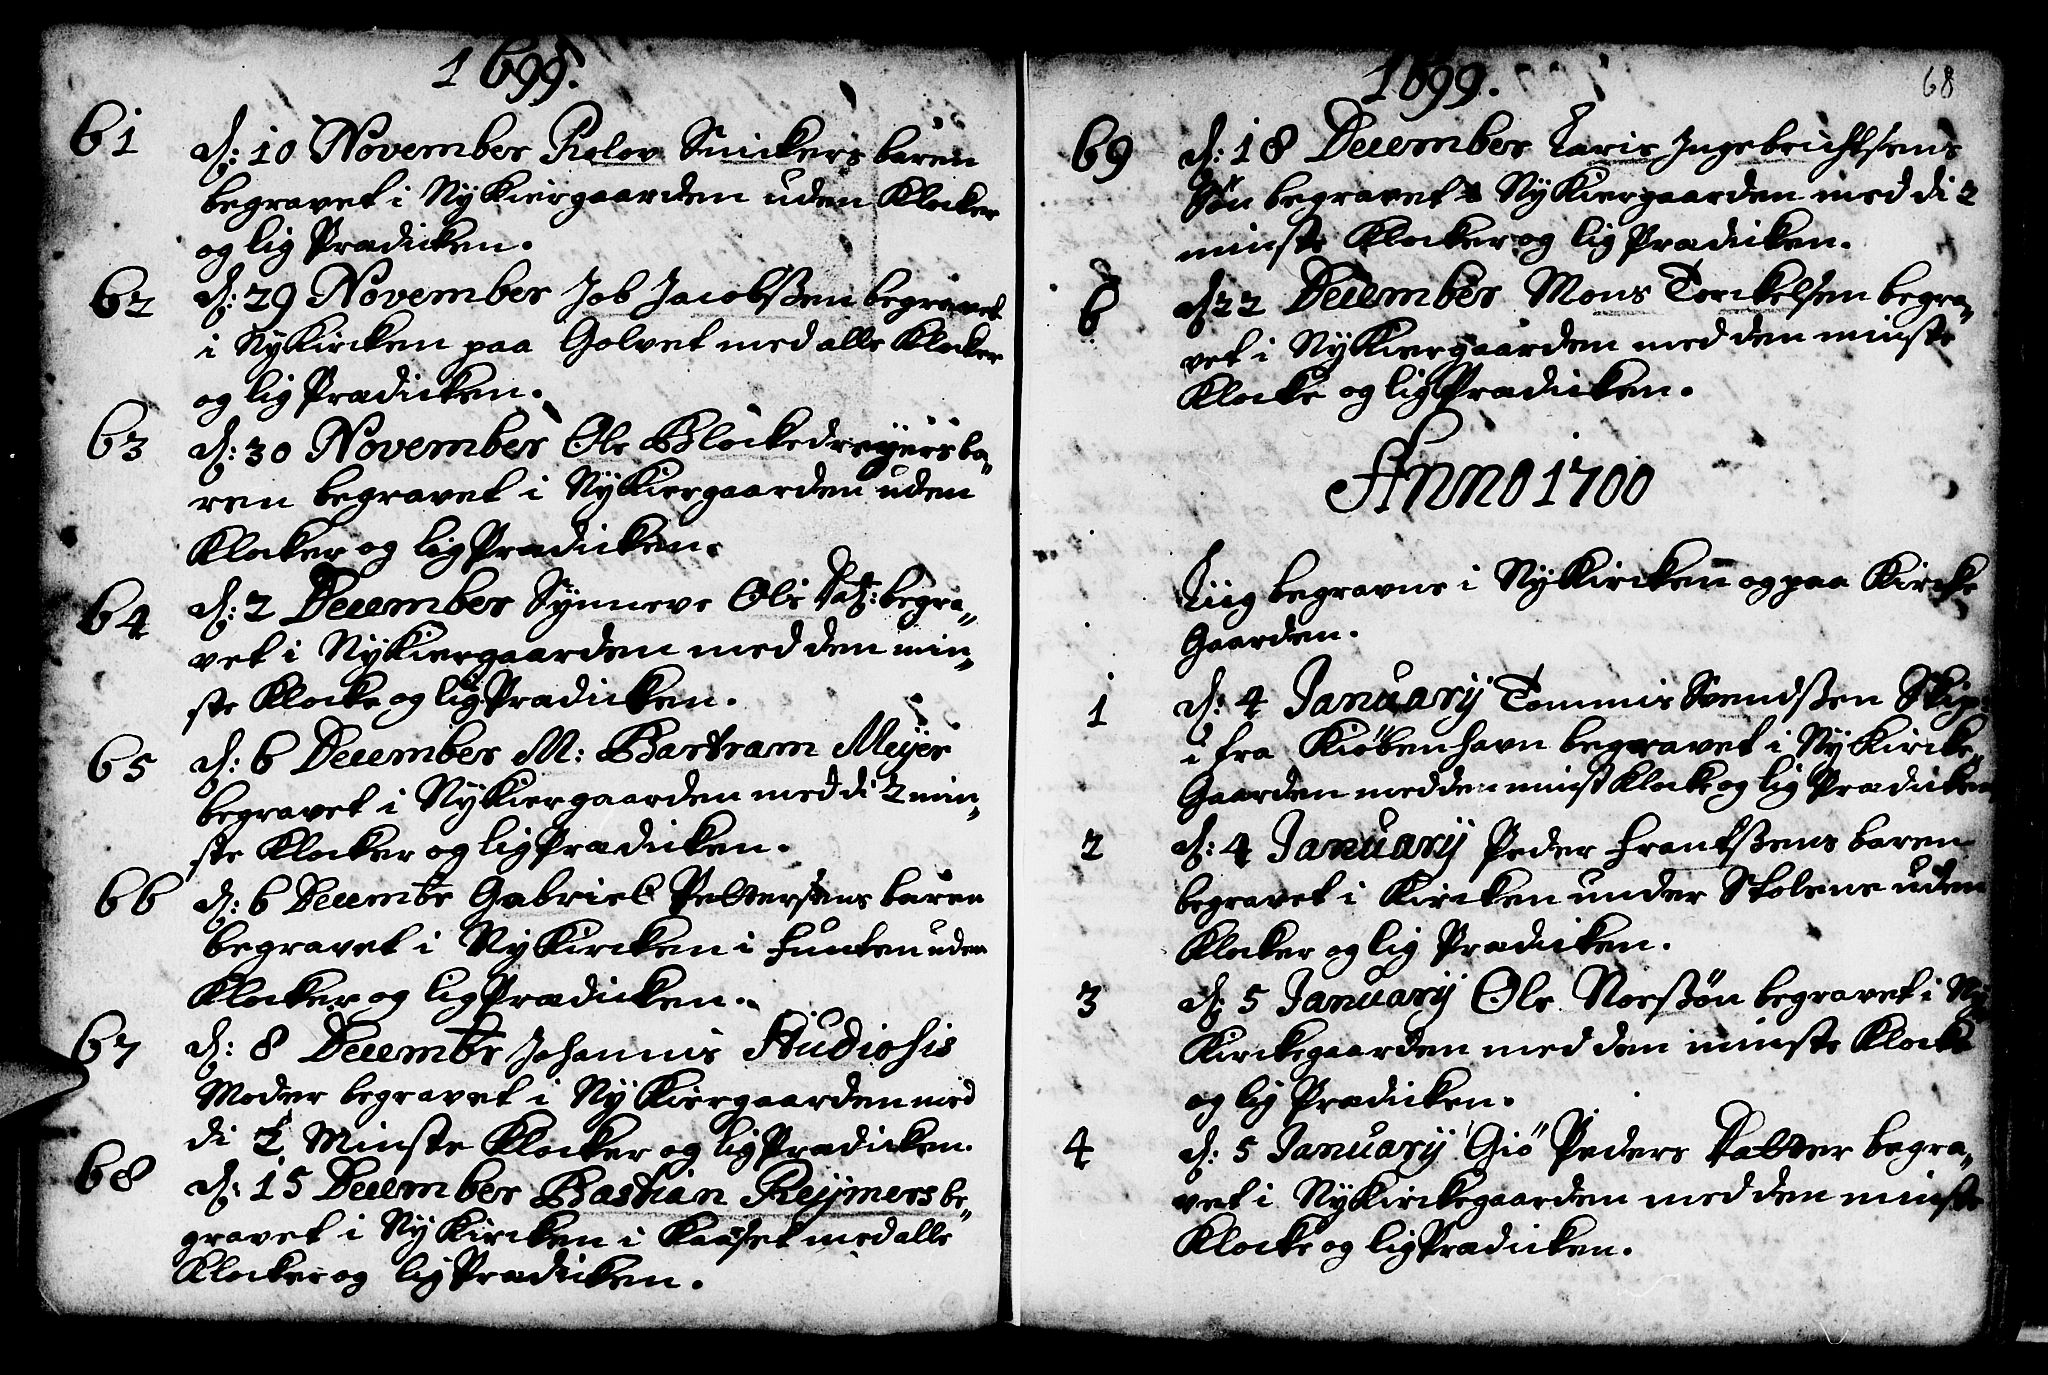 1699.
61 d: 10 November Rolov Snickers baren
begravet i NyKiergaarden uden Klocker
og lig Prædicken.
62 d: 29 November Job Jacobsßen begravet
i NyKircken paa Golvet med alle Klocker
og lig Prædicken.
63 d: 30 November Ole Blockedreyers ba-
ren begravet i NyKiergaarden uden
Klocker og lig Prædicken.
64 d: 2 December Synneve Ols Dat: begra-
vet i NyKiergaarden med den min-
ste Klocke og lig Prædicken.
65 d: 6 December M: Bartram Meÿer
begravet i NyKiergaarden med di 2 min-
ste Klocker og lig Prædicken.
66 d: 6 Decembr Gabriel Pettersens baren
begravet i NyKircken i Funten uden
Klocker og lig Prædicken.
67 d: 8 Decembr Johannis Studiosis
Moder begravet i NyKiergaarden med
di 2 Minste Klocker og lig Prædicken.
68 d: 15 December Bastian Reijmers be-
gravet i NyKircken i Kaaset med alle
Klocker og lig Prædicken.
1699.
68
69 d: 18 December Taris Ingebrichtsens
Søn begravet NyKiergaarden med di 2
minste Klocker og lig Prædicken.
d 22 December Mons Torckelsen begra-
vet i NyKiergaarden med den minste
Klocke og lig Prædicken.
Anno 1700
Liig begravne i NyKircken og paa Kircke
Gaarden.
1 d: 4 Januarij Tommis Svendsßen Skip:
i fra Kiøbenhavn begravet i NyKircke
Gaarden med den minst Klocke og lig Prædicken
2 d: 4 Januarij Peder Frantsßens baren
begravet i Kircken under Stolene uden
Klocker og lig Prædicken.
3 d: 5 Januarij Ole Norsßøn begravet i Ny
Kirckegaarden med den minste Klocke
og lig Prædicken.
4 d: 5 Januarij Giø Peders Datter begra-
vet i NyKirckegaarden med den minste
Klocke og lig Prædicken.